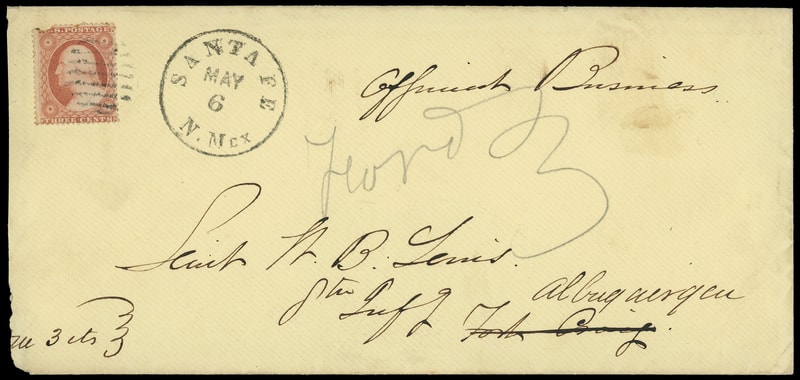 U.S. POSTAGE
THREE CENTS
SANTA FE
MAY
6
N. MEX
Official Business
Forwd 3
Lieut W. B. Lewis.
8th Inf'y Albuquerque
Fort Craig.
Due 3 cts 3